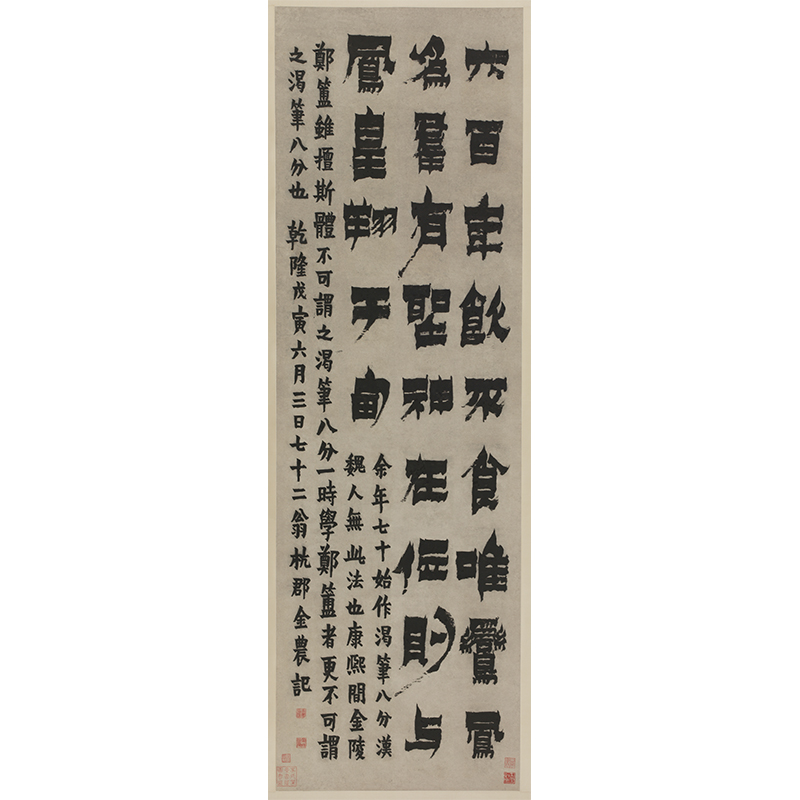 六百年飲不食唯鸞鳳
為羣有聖神在位則与
鳳皇翔于甸
余年七十始作渴筆八分漢
魏人無此法也康熙間金陵
鄭簠雖擅斯體不可謂之渴筆八分一時學鄭簠者更不可謂
之渴筆八分也 乾隆戊寅六月三日七十二翁杭郡金農記